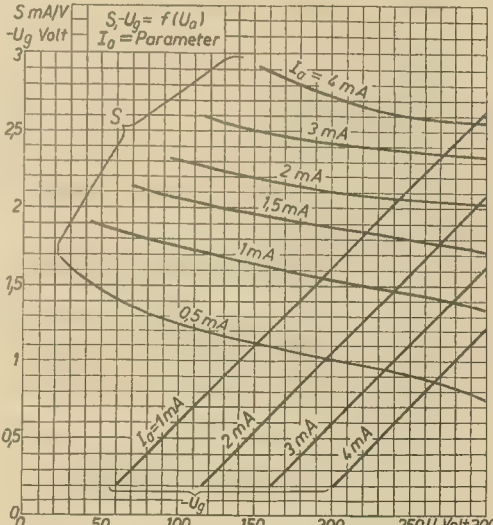 S mA/V
-Ug Volt
S,-Ug = f(Ua)
Ia = Parameter
3
2,5
2
1,5
1
0,5
0
S
Ia = 4 mA
3 mA
2 mA
1,5mA
1mA
0,5mA
Ia=1mA
2mA
3mA
4mA
-Ug
0
50
100
150
200
250 U Volt 300